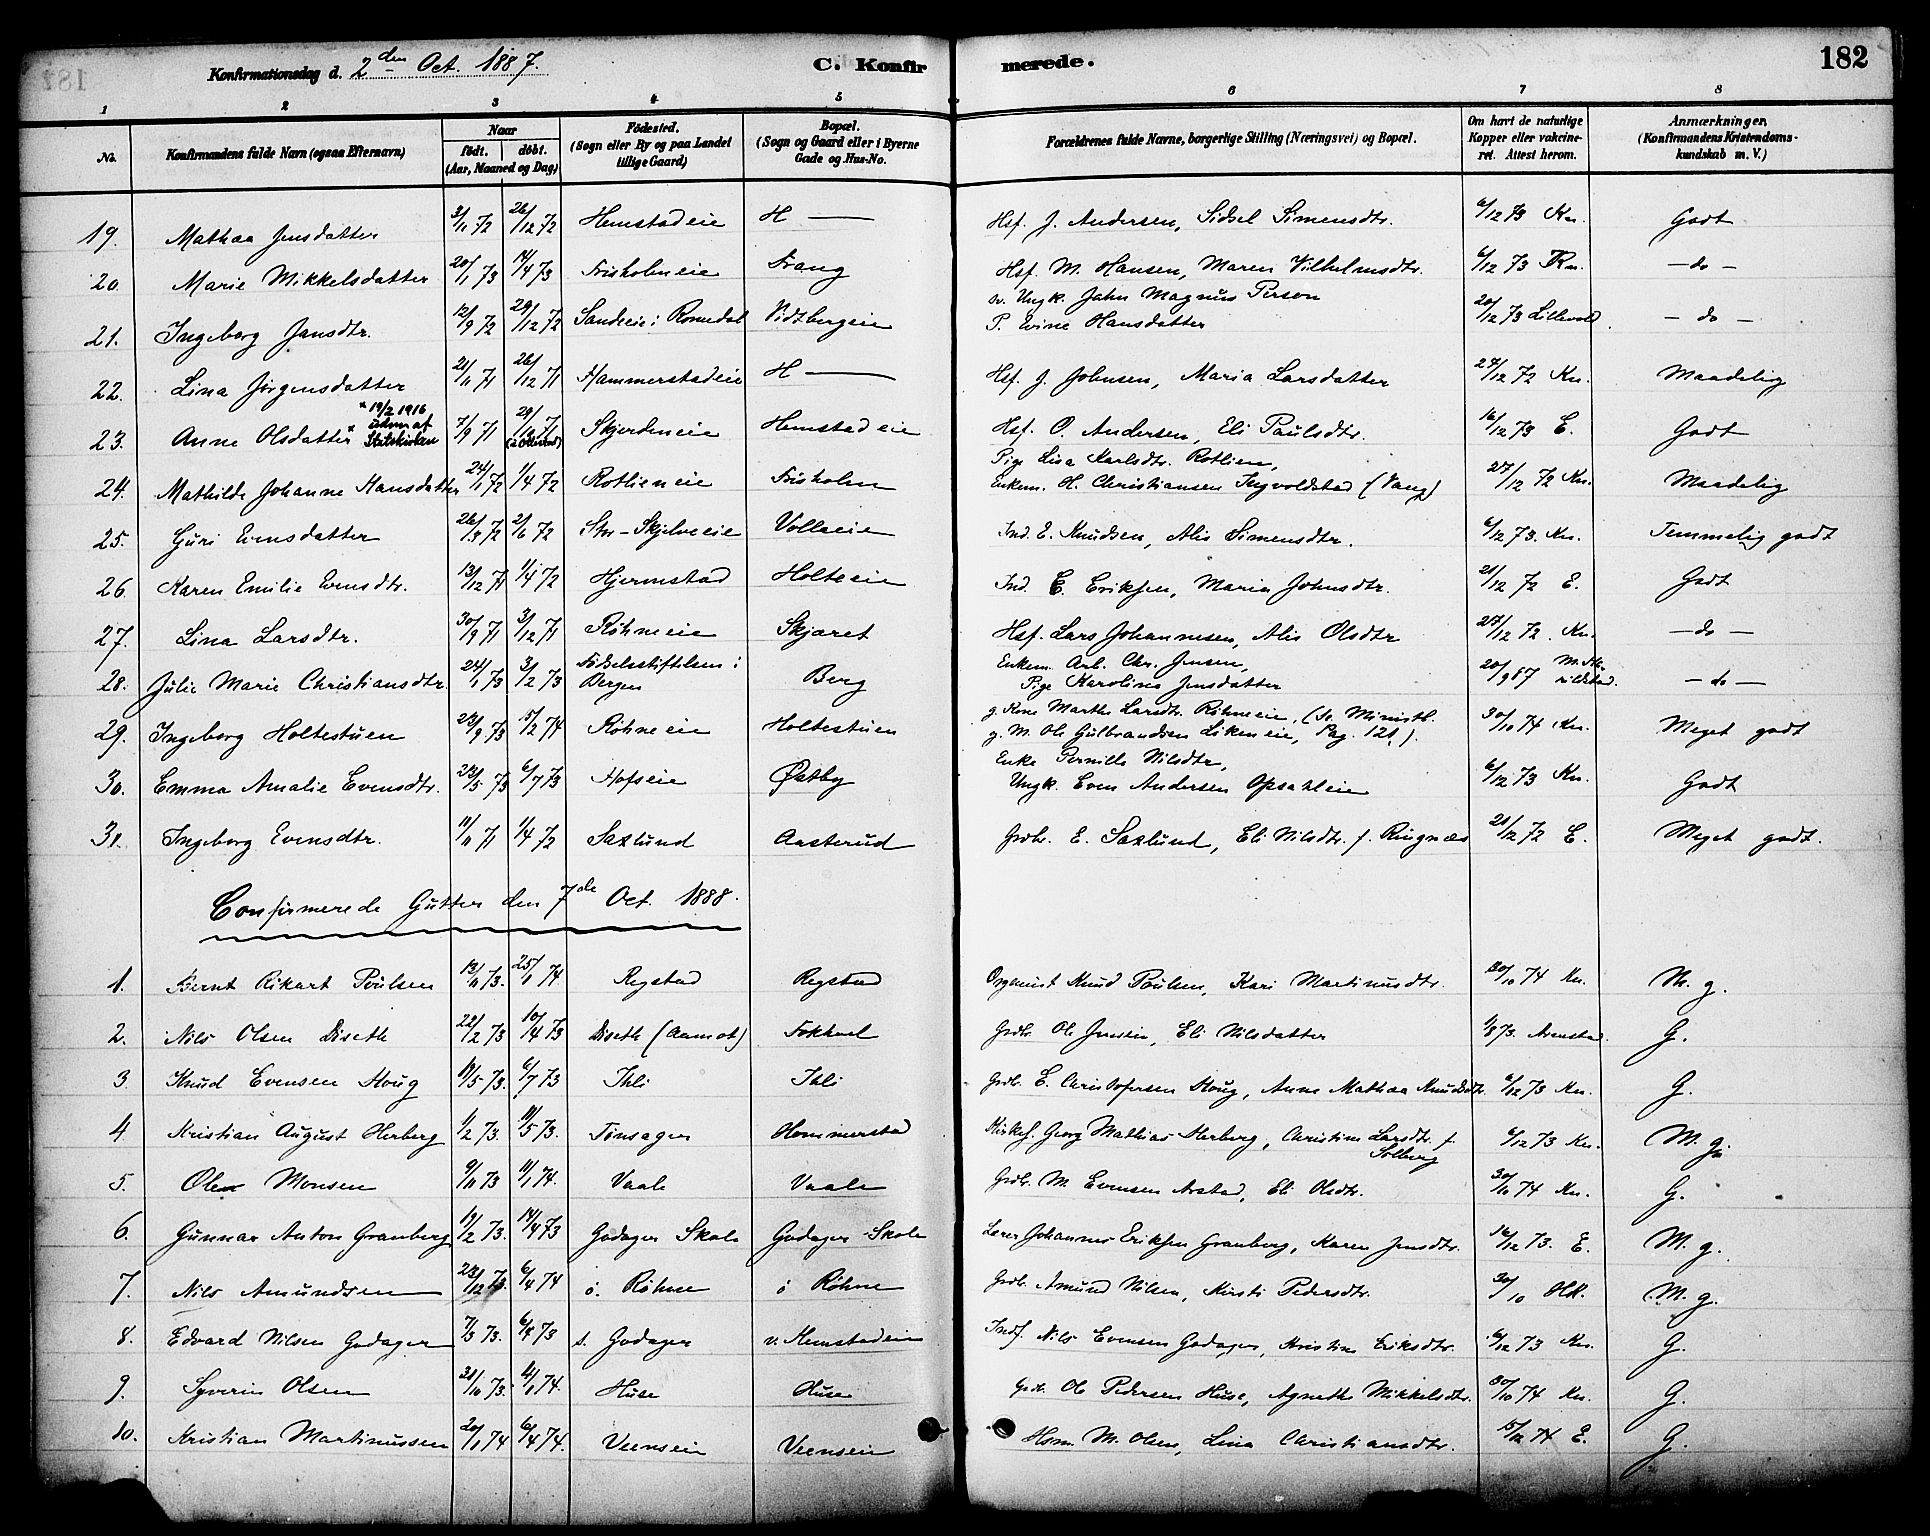 Konfirmationsdag d. 2den Oct. 1887. C. Konfirmerede. 182
1 2 3 4 5 6 7 8
No. Konfirmandens fulde Navn (ogsaa Efternavn) Naar født. døbt. (Aar, Maaned og Dag) Fødested. (Sogn eller By og paa Landet tillige Gaard) Bopæl. (Sogn og Gaard eller i Byerne Gade og Hus-No. Forældrenes fulde Navne, borgerlige Stilling (Næringsvei) og Bopæl. Om havt de naturlige Kopper eller vakcineret. Attest herom. Anmærkninger. (Konfirmandens Kristendomskundskab m. V.)
19. Mathea Jensdatter 3/11 72 26/12 72 Hemstadeie H — Hsf. J. Andersen, Sidsel Simensdtr. 6/12 73 Kn. Godt
20. Marie Mikkelsdatter 20/1 73 14/4 73 Frisholmeie Frang Hsf. M. Hansen, Maren Vilhelmsdtr. 6/12 73 Kn. — do —
21. Ingeborg Jansdtr. 12/9 72 29/12 72 Sandeie i Romedal Vidtbergeie sv. Ungk. Jahn Magnus Person
P. Evine Hansdatter 20/12 73 Lillevold. — do —
22. Lina Jørgensdatter 21/11 71 26/12 71 Hammerstadeie H — Hsf. J. Johnsen, Maria Larsdatter 27/12 72 Kn. Maadelig
23. Anne Olsdatter * * 19/2 1916 udm. af Statskirken 7/9 71 29/10 71 Skjerdeneie Hemstadeie Hsf. O. Andersen, Eli Paulsdtr. 16/12 73 E. Godt
24. Mathilde Johanne Hansdatter 24/1 72 1/4 72 Rotlieneie Frisholm Pige Lisa Karlsdtr. Rotlien,
Enkem. H. Christiansen Ingvoldstad (Vang) 27/12 72 Kn. Maadelig
25. Guri Evensdatter 26/3 72 2/6 72 Str-Skjelveeie Vollaeie Ind. E. Knudsen, Alis Simensdtr. 6/12 73. Kn. Temmelig godt
26. Karen Emilie Evensdtr. 13/12 71 1/4 72 Hjermstad Holteeie Ind. E. Eriksen, Maria Johnsdtr. 21/12 72 E. Godt
27. Lina Larsdtr. 30/9 71 3/12 71 Røhneeie Skjæret Hsf. Lars Johannesen, Alis Olsdtr 27/12 72. Kn. — do —
28. Julie Marie Christiansdtr. 24/1 73 3/2 73 Fødselsstiftelsen i Bergen Berg Enkem. Arb. Chr. Jensen,
Pige Karoline Jensdatter 20/9 87 — do —
29. Ingeborg Holtestuen 23/9 73 15/2 74 Røhneeie Holtestuen g. Kone Marthe Larsdtr. Røhneeie, (Se Ministl.
g. M. Ole Gulbrandsen Likeneie, Pag. 121.). 30/10 74 Kn. Meget godt
30. Emma Amalie Evensdtr. 23/5 73 6/7 73 Hofseie Østby Enke Pernille Nilsdtr,
Ungk. Even Andersen Opsahleie 6/12 73 Kn. Godt
31. Ingeborg Evensdtr. 11/11 71 1/4 72 Saxlund Aasterud Grdbr. E. Saxlund, Eli Nilsdtr. f. Ringnæs 21/12 72 E. Meget godt.
Confirmerede Gutter den 7de Oct. 1888.
1. Bernt Rikart Poulsen 13/11 73. 25/1 74. Regstad Regstad Organist Knud Poulsen, Kari Martinusdtr. 30/10 74 Kn. M. g.
2. Nils Olsen Diseth 22/2 73 10/4 73 Diseth (Aamot) Fokhol Grdbr. Ole Jensen, Eli Nilsdatter 1/8 73. Arenstad. G.
3. Knud Evensen Houg 19/5 73. 6/7 73 Ihli Ihli Grdbr. E. Christofersen Houg, Anne Mathea Knudsdtr 6/12 73 Kn. G.
4. Kristian August Herberg 1/2 73. 11/5 73. Tønsager Hommerstad Kirkes. Georg Mathias Herberg, Christine Larsdtr. f. Solberg 6/12 73 Kn. M. g.
5. Ole Monsen 9/11 73 11/1 74. Vaale Vaale Grdbr. M. Evensen Arstad, Eli Olsdtr. 30/10 74 Kn. G.
6. Gunnar Anton Granberg 19/2 73. 14/4 73 Godager Skole Godager Skole Lærer Johannes Eriksen Granberg, Karen Jensdtr. 16/12 73. E. M. g.
7. Nils Amundsen 23/12 73. 6/4 74 ø. Røhne ø Røhne Grdbr. Amund Nilsen, Kirsti Pedersdtr. 30/10 M. g.
8. Edvard Nilsen Godager 7/3 73. 6/4 73 s. Godager v. Hemstadeie Indf. Nils Evensen Godager, Kristine Eriksdtr. 6/12 73 Kn. G.
9. Syverin Olsen 21/10 73. 4/1 74. Huse Huse Grdbr. Ole Pedersen Huse, Agnethe Mikkelsdtr. 30/10 74 Kn. G.
10. Kristian Martinussen 20/1 74 6/4 74. Veenseie Veenseie Hsm. M. Olsen, Lina Christiansdtr. 15/12 74 E. G.